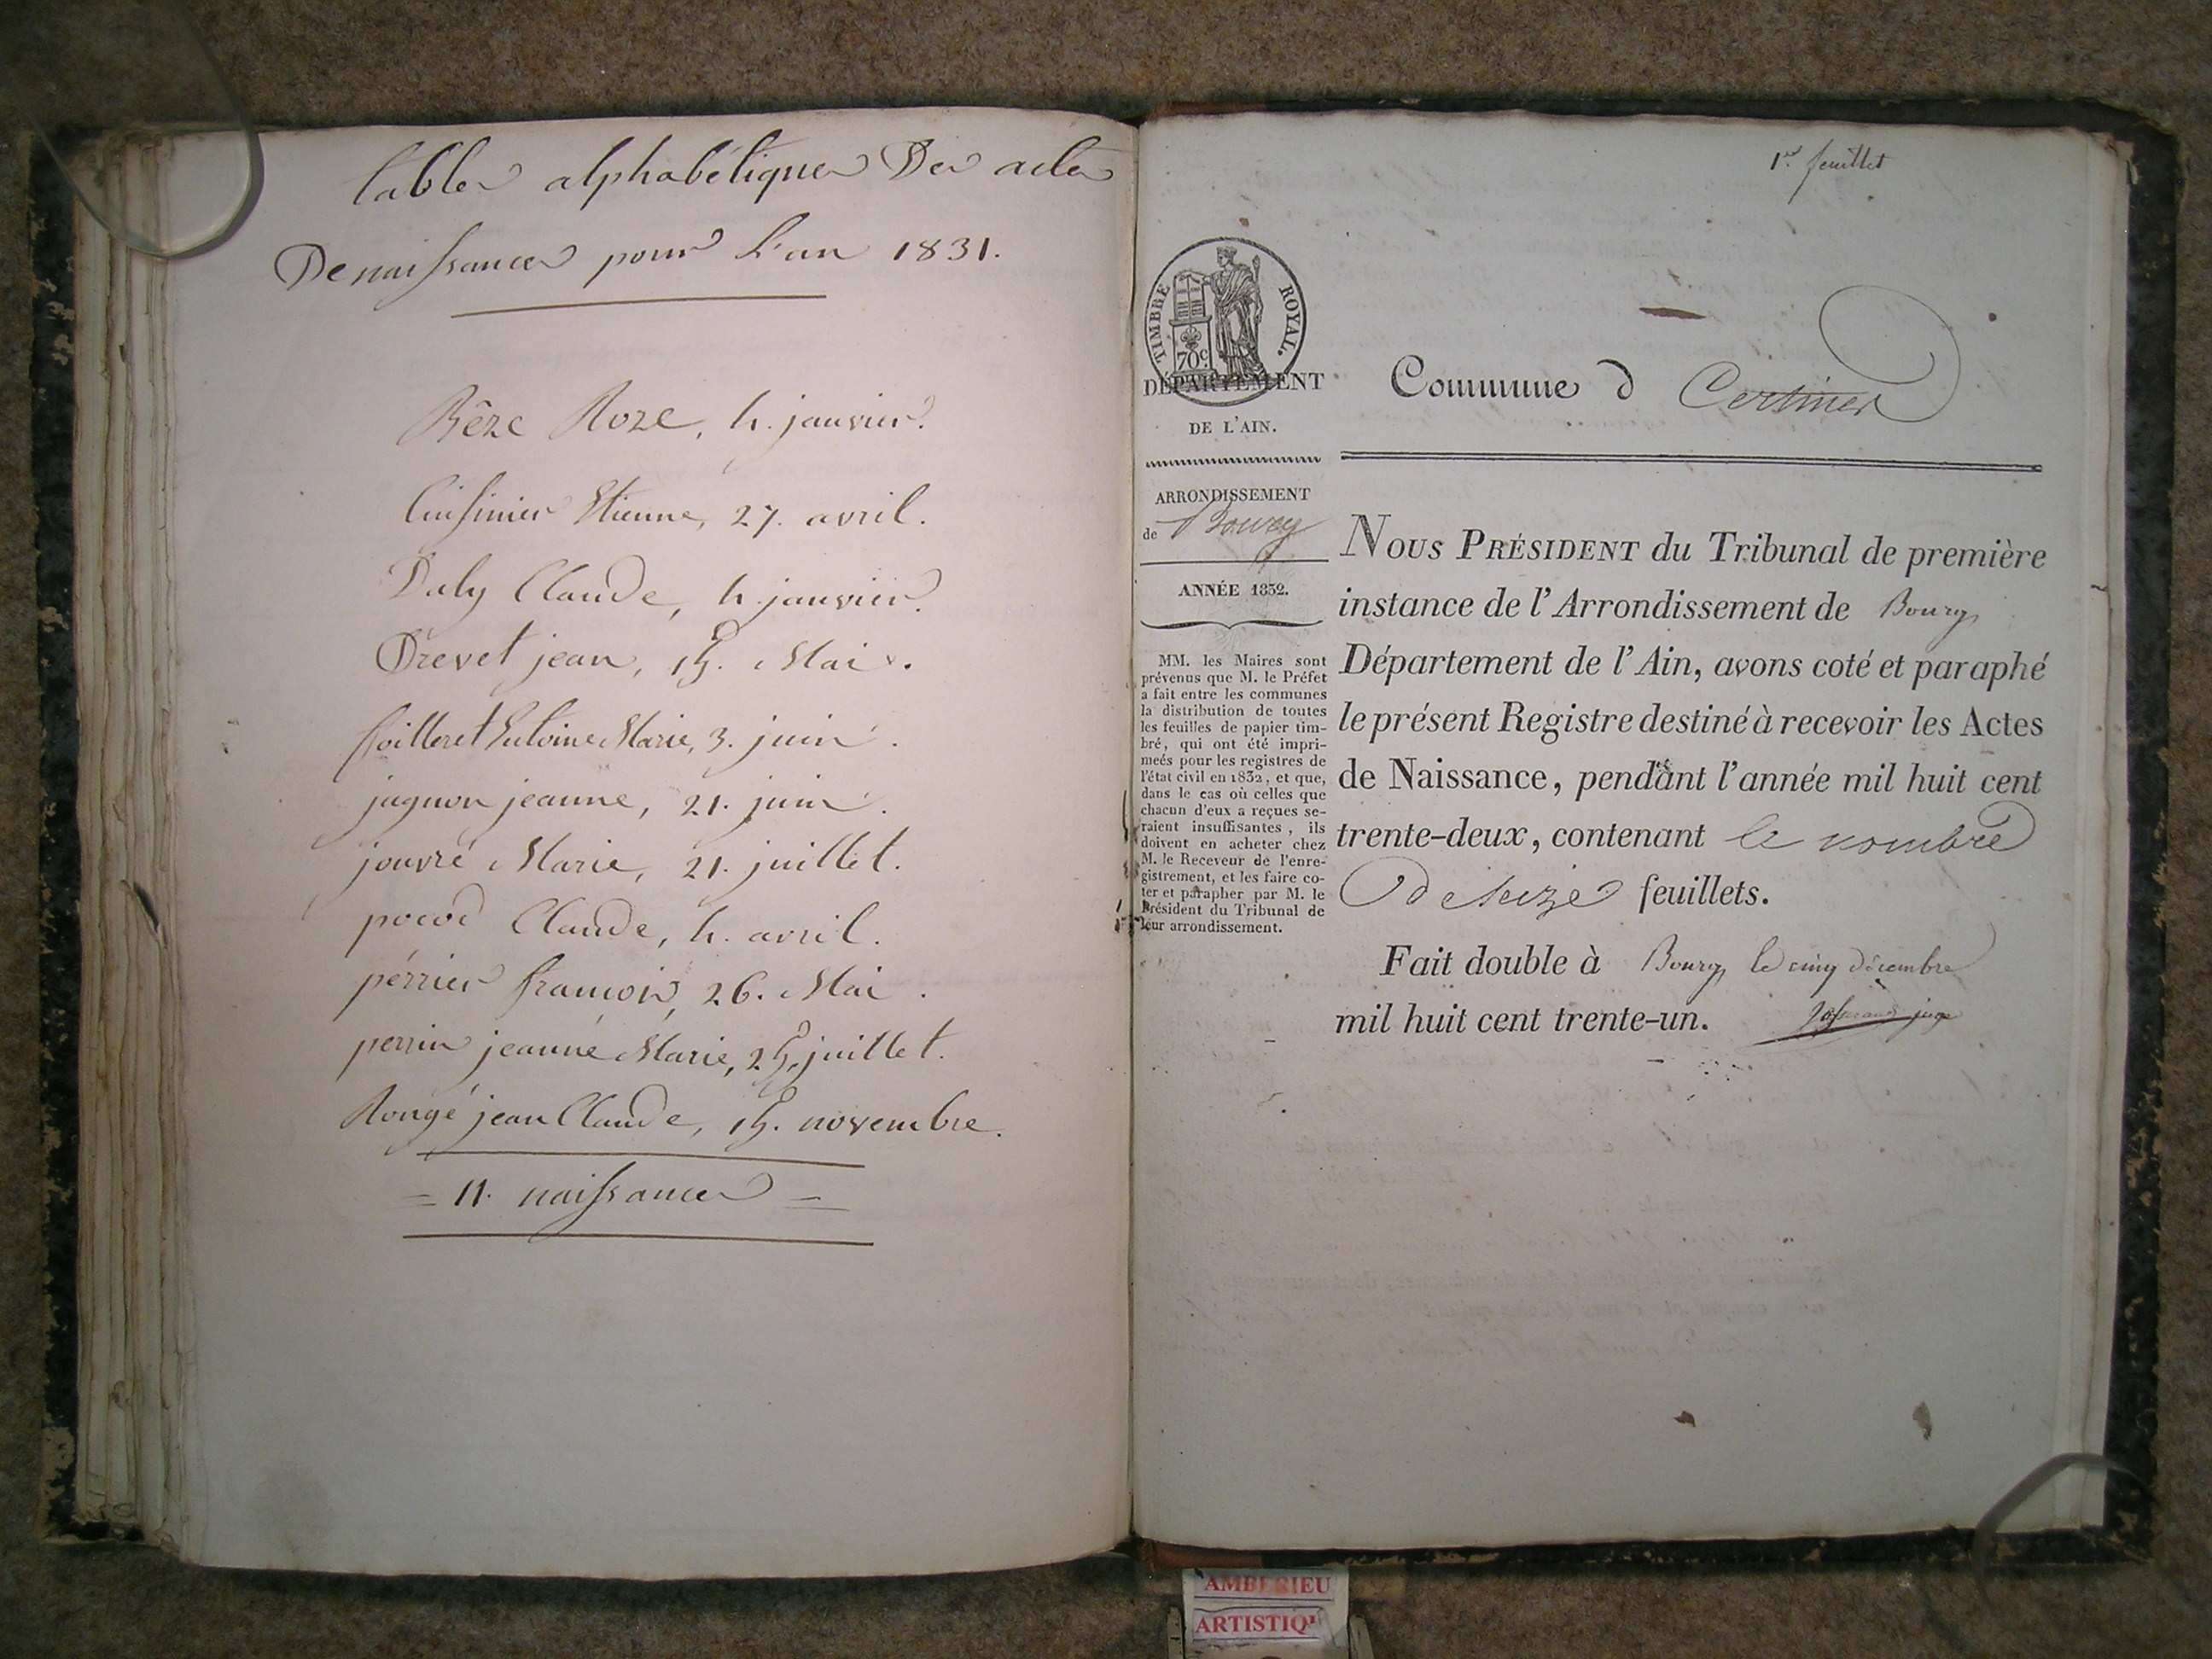 tables alphabétiques Des actes
De naissances pour L'an 1831.
Bêze Roze, 4. janvier.
Cuisinier Etienne, 27. avril.
Daly Claude, 4 janvier.
Drevet jean, 15. Mai.
foilleret Antoine Marie, 3. juin.
jagnon jeanne, 21. juin.
jouvré Marie, 21. juillet.
pocod Claude, 4. avril.
périer françois, 26. Mai.
perrin jeanne Marie, 25. juillet.
Rongé jean Claude, 15. novembre.
= 11. naissances =
1er feuillet
TIMBRE ROYAL.
70c
DÉPARTEMENT
DE L'AIN.
Commune d Certines
ARRONDISSEMENT
de Bourg
ANNÉE 1832.
MM. les Maires sont
prévenus que M. le Préfet
a fait entre les communes
la distribution de toutes
les feuilles de papier tim-
bré, qui ont été impri-
meés pour les registres de
l'état civil en 1832, et que,
dans le cas où celles que
chacun d'eux a reçues se-
raient insuffisantes, ils
doivent en acheter chez
M. le Receveur de l'enre-
gistrement, et les faire co-
ter et parapher par M. le
Président du Tribunal de
leur arrondissement.
NOUS PRÉSIDENT du Tribunal de première
instance de l'Arrondissement de Bourg
Département de l'Ain, avons coté et paraphé
le présent Registre destiné à recevoir les Actes
de Naissance, pendant l'année mil huit cent
trente-deux, contenant le nombre
de seize feuillets.
Fait double à Bourg, le cinq décembre
mil huit cent trente-un.
juge
AMBERIEU
ARTISTIQU